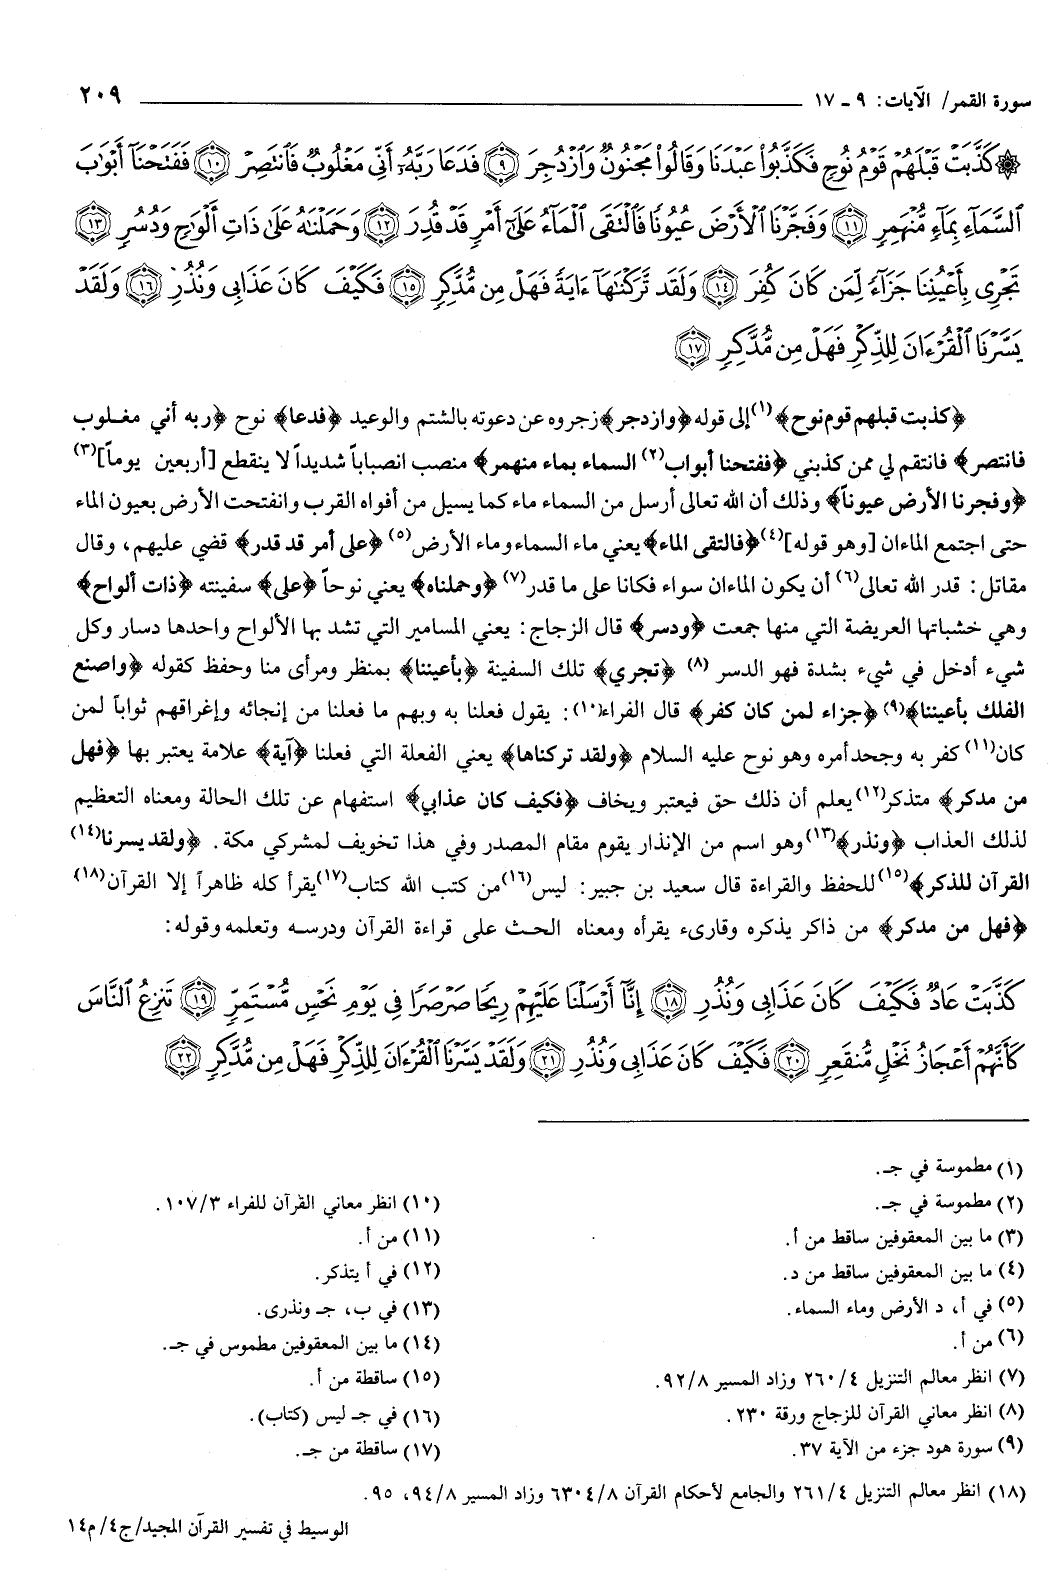 سورة القمر/ الآيات: ٩ - ١٧ ٢٠٩
۞ كَذَّبَتْ قَبْلَهُمْ قَوْمُ نُوحٍ فَكَذَّبُوا۟ عَبْدَنَا وَقَالُوا۟ مَجْنُونٌ وَٱزْدُجِرَ ﴿٩﴾ فَدَعَا رَبَّهُۥٓ أَنِّى مَغْلُوبٌ فَٱنتَصِرْ ﴿١٠﴾ فَفَتَحْنَآ أَبْوَٰبَ
ٱلسَّمَآءِ بِمَآءٍ مُّنْهَمِرٍ ﴿١١﴾ وَفَجَّرْنَا ٱلْأَرْضَ عُيُونًا فَٱلْتَقَى ٱلْمَآءُ عَلَىٰٓ أَمْرٍ قَدْ قُدِرَ ﴿١٢﴾ وَحَمَلْنَٰهُ عَلَىٰ ذَاتِ أَلْوَٰحٍ وَدُسُرٍ ﴿١٣﴾
تَجْرِى بِأَعْيُنِنَا جَزَآءً لِّمَن كَانَ كُفِرَ ﴿١٤﴾ وَلَقَد تَّرَكْنَٰهَآ ءَايَةً فَهَلْ مِن مُّدَّكِرٍ ﴿١٥﴾ فَكَيْفَ كَانَ عَذَابِى وَنُذُرِ ﴿١٦﴾ وَلَقَدْ
يَسَّرْنَا ٱلْقُرْءَانَ لِلذِّكْرِ فَهَلْ مِن مُّدَّكِرٍ ﴿١٧﴾
﴿كذبت قبلهم قوم نوح﴾(١) إلى قوله ﴿وازدجر﴾ زجروه عن دعوته بالشتم والوعيد ﴿فدعا﴾ نوح ﴿ربه أني مغلوب
فانتصر﴾ فانتقم لي ممن كذبني ﴿ففتحنا أبواب(٢) السماء بماء منهمر﴾ منصب انصباباً شديداً لا ينقطع [أربعين يوماً](٣)
﴿وفجرنا الأرض عيوناً﴾ وذلك أن الله تعالى أرسل من السماء ماء كما يسيل من أفواه القرب وانفتحت الأرض بعيون الماء
حتى اجتمع الماءان [وهو قوله](٤) ﴿فالتقى الماء﴾ يعني ماء السماء وماء الأرض(٥) ﴿على أمر قد قدر﴾ قضي عليهم، وقال
مقاتل: قدر الله تعالى(٦) أن يكون الماءان سواء فكانا على ما قدر(٧) ﴿وحملناه﴾ يعني نوحاً ﴿على﴾ سفينته ﴿ذات ألواح﴾
وهي خشباتها العريضة التي منها جمعت ﴿ودسر﴾ قال الزجاج: يعني المسامير التي تشد بها الألواح واحدها دسار وكل
شيء أدخل في شيء بشدة فهو الدسر(٨) ﴿تجري﴾ تلك السفينة ﴿بأعيننا﴾ بمنظر ومرأى منا وحفظ كقوله ﴿واصنع
الفلك بأعيننا﴾(٩) ﴿جزاء لمن كان كفر﴾ قال الفراء(١٠): يقول فعلنا به وبهم ما فعلنا من إنجائه وإغراقهم ثواباً لمن
كان(١١) كفر به وجحد أمره وهو نوح عليه السلام ﴿ولقد تركناها﴾ يعني الفعلة التي فعلنا ﴿آية﴾ علامة يعتبر بها ﴿فهل
من مدكر﴾ متذكر(١٢) يعلم أن ذلك حق فيعتبر ويخاف ﴿فكيف كان عذابي﴾ استفهام عن تلك الحالة ومعناه التعظيم
لذلك العذاب ﴿ونذر﴾(١٣) وهو اسم من الإنذار يقوم مقام المصدر وفي هذا تخويف لمشركي مكة. ﴿ولقد يسرنا(١٤)
القرآن للذكر﴾(١٥) للحفظ والقراءة قال سعيد بن جبير: ليس(١٦) من كتب الله كتاب(١٧) يقرأ كله ظاهراً إلا القرآن(١٨)
﴿فهل من مدكر﴾ من ذاكر يذكره وقارىء يقرأه ومعناه الحث على قراءة القرآن ودرسه وتعلمه وقوله:
كَذَّبَتْ عَادٌ فَكَيْفَ كَانَ عَذَابِى وَنُذُرِ ﴿١٨﴾ إِنَّآ أَرْسَلْنَا عَلَيْهِمْ رِيحًا صَرْصَرًا فِى يَوْمِ نَحْسٍ مُّسْتَمِرٍّ ﴿١٩﴾ تَنزِعُ ٱلنَّاسَ
كَأَنَّهُمْ أَعْجَازُ نَخْلٍ مُّنقَعِرٍ ﴿٢٠﴾ فَكَيْفَ كَانَ عَذَابِى وَنُذُرِ ﴿٢١﴾ وَلَقَدْ يَسَّرْنَا ٱلْقُرْءَانَ لِلذِّكْرِ فَهَلْ مِن مُّدَّكِرٍ ﴿٢٢﴾
(١) مطموسة في جـ.
(٢) مطموسة في جـ.
(٣) ما بين المعقوفين ساقط من أ.
(٤) ما بين المعقوفين ساقط من د.
(٥) في أ، د الأرض وماء السماء.
(٦) من أ.
(٧) انظر معالم التنزيل ٤/ ٢٦٠ وزاد المسير ٨/ ٩٢.
(٨) انظر معاني القرآن للزجاج ورقة ٢٣٠.
(٩) سورة هود جزء من الآية ٣٧.
(١٠) انظر معاني القرآن للفراء ٣/ ١٠٧.
(١١) من أ.
(١٢) في أ يتذكر.
(١٣) في ب، جـ ونذرى.
(١٤) ما بين المعقوفين مطموس في جـ.
(١٥) ساقطة من أ.
(١٦) في جـ ليس (كتاب).
(١٧) ساقطة من جـ.
(١٨) انظر معالم التنزيل ٤/ ٢٦١ والجامع لأحكام القرآن ٨/ ٦٣٠٤ وزاد المسير ٨/ ٩٤، ٩٥.
الوسيط في تفسير القرآن المجيد/ ج٤/ م١٤